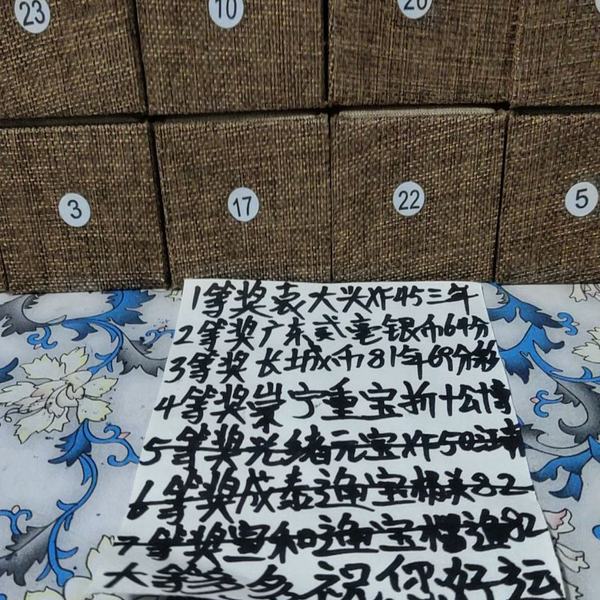 23 10 20
3 17 22 5
1等奖袁大头XF45三年
2等奖广东贰毫银币64分
3等奖长城币81年68分
4等奖崇宁重宝折十公博
5等奖光绪元宝XF50
6等奖咸泰通宝 82
7等奖宣和通宝 82
大等多多祝你好运